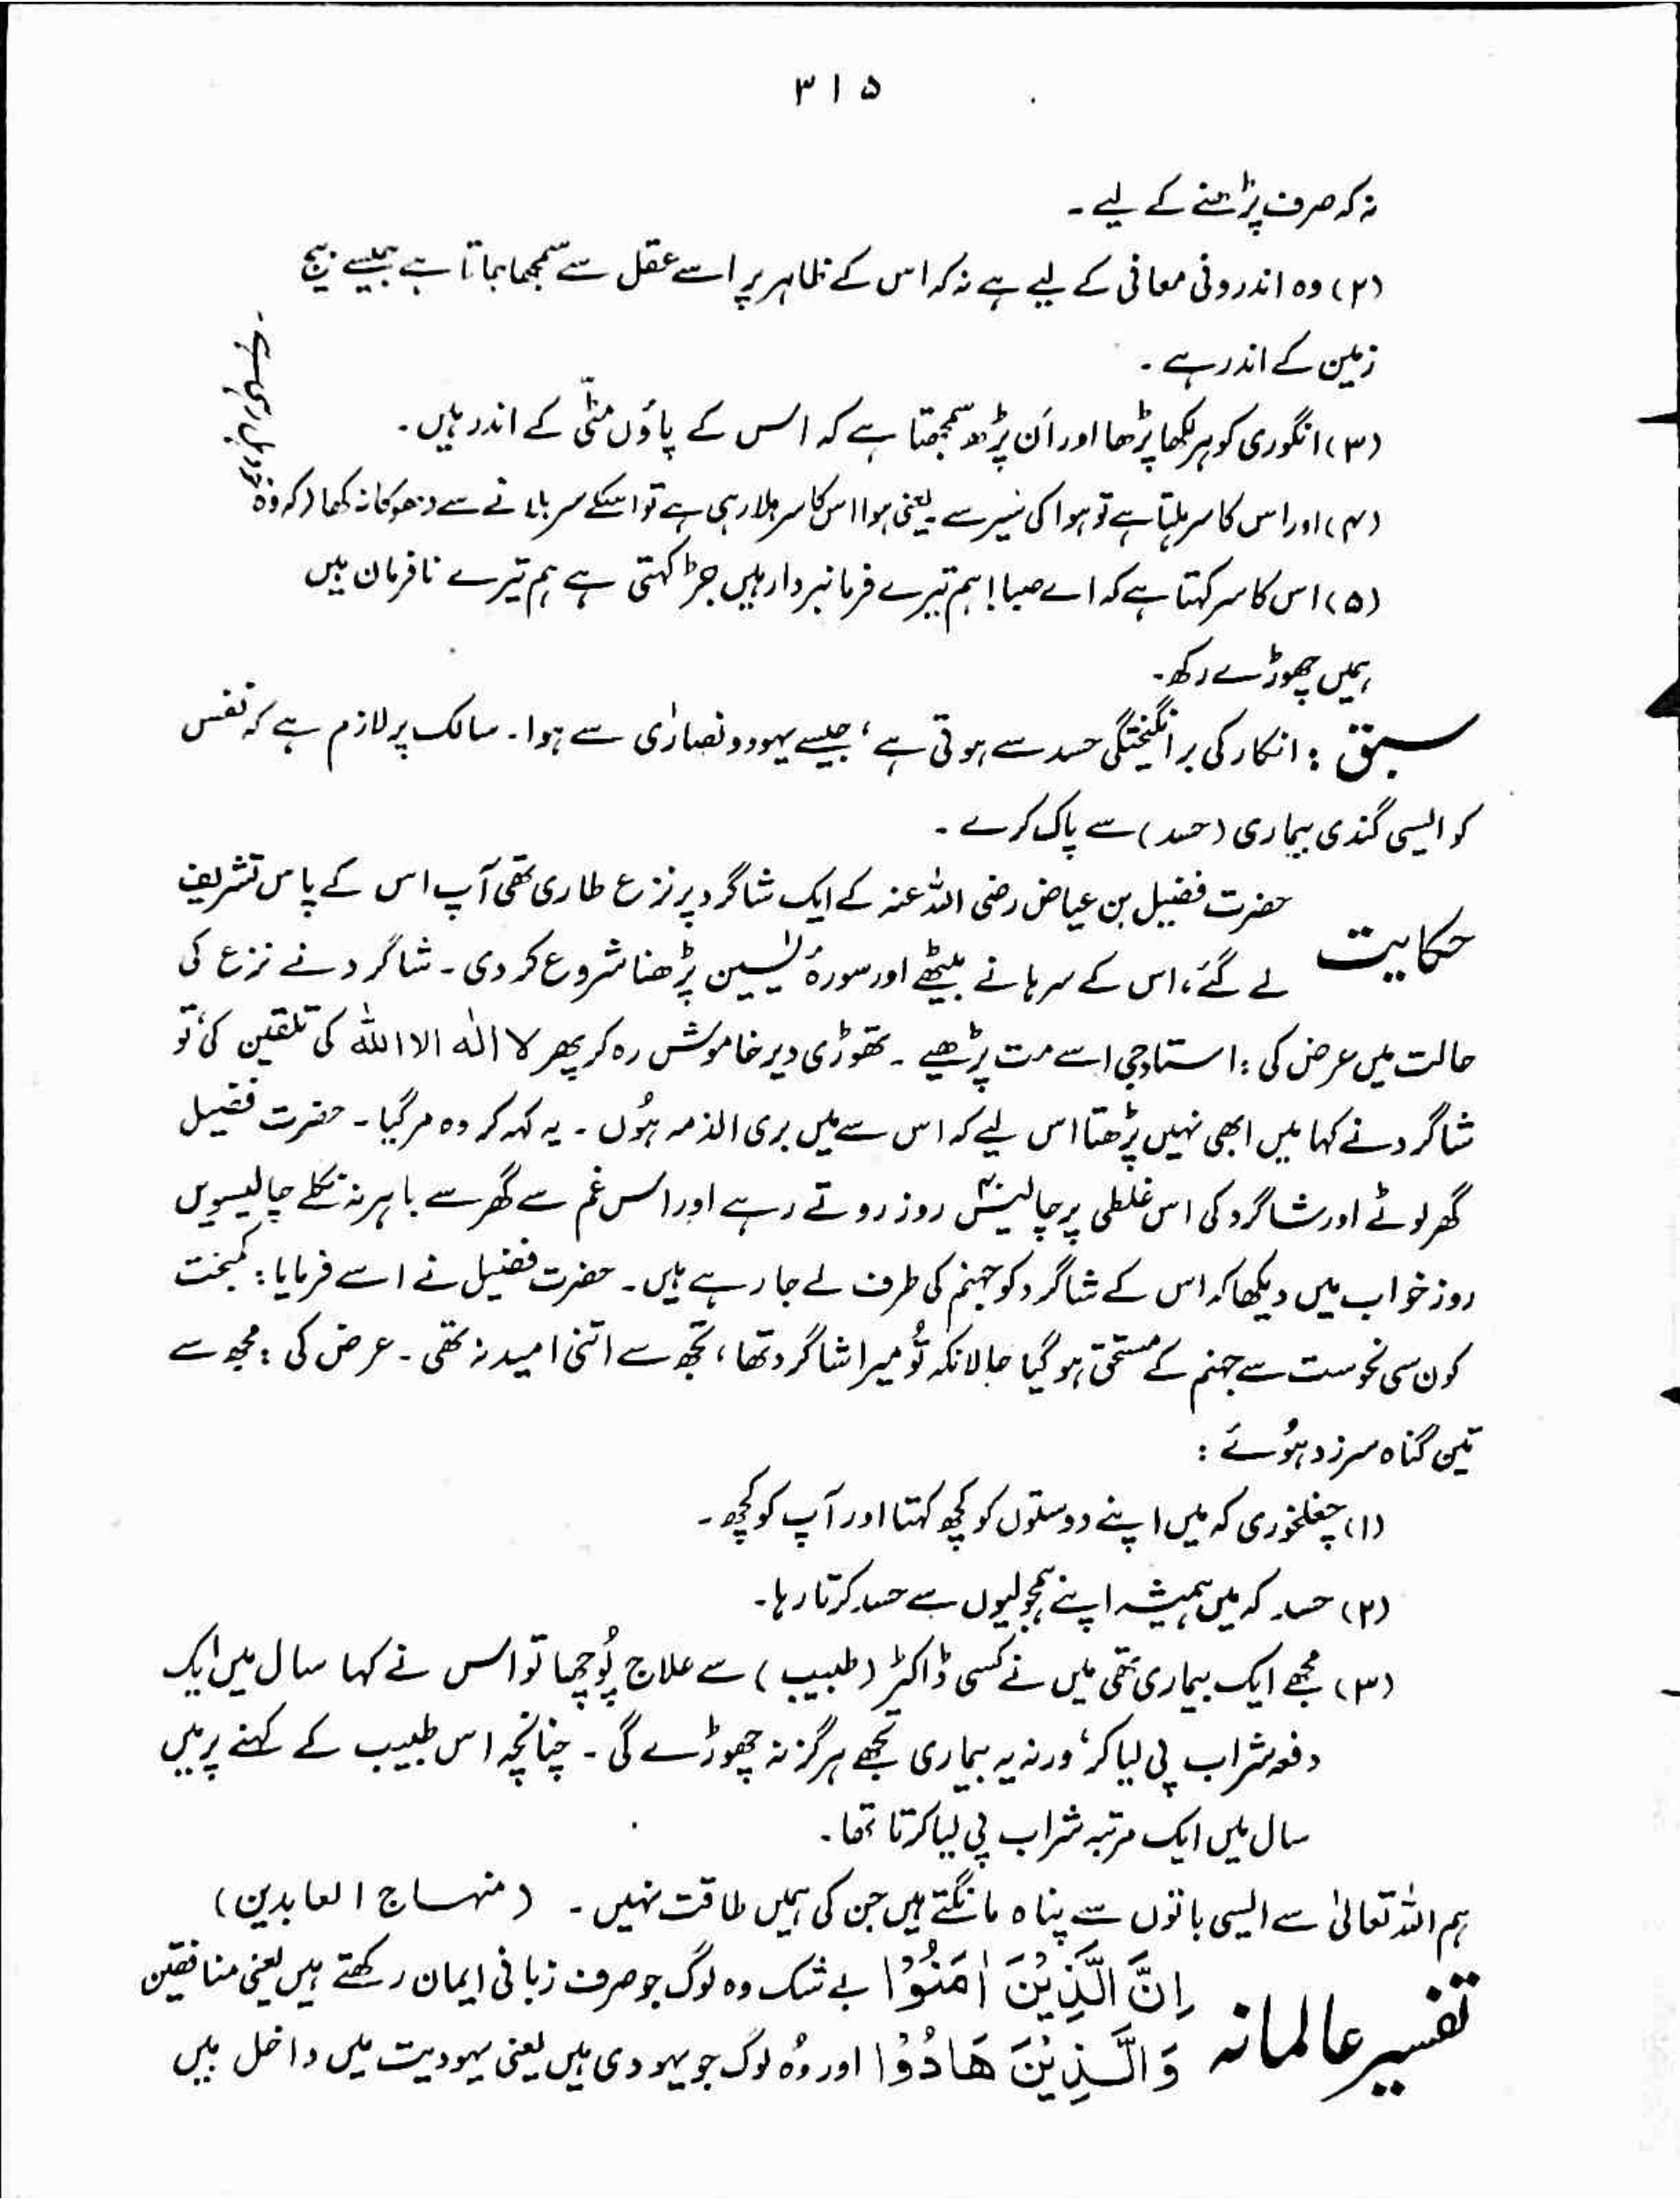 ۳۱۵
نہ کہ صرف پڑھنے کے لیے۔
(۲) وہ اندرونی معانی کے لیے ہے نہ کہ اس کے ظاہر پر اسے عقل سے سمجھا جاتا ہے جیسے بیج
زمین کے اندر ہے۔
(۳) انگوری کو ہر لکھا پڑھا اور اَن پڑھ سمجھتا ہے کہ اس کے پاؤں مٹّی کے اندر ہیں۔
(۴) اور اس کا سر ہلتا ہے تو ہوا کی سَیر سے۔ یعنی ہوا اس کا سر ہلا رہی ہے تو اسکے سر ہلانے سے دھوکا نہ کھا (کہ وہ
(۵) اس کا سر کہتا ہے کہ اے صبا! ہم تیرے فرمانبردار ہیں جڑ کہتی ہے ہم تیرے نافرمان ہیں
ہمیں چھوڑے رکھ۔
سبق : انکار کی برانگیختگی حسد سے ہوتی ہے، جیسے یہود و نصارٰی سے ہوا۔ سالک پر لازم ہے کہ نفس
کو ایسی گندی بیماری (حسد) سے پاک کرے۔
حکایت حضرت فضیل بن عیاض رضی اللہ عنہ کے ایک شاگرد پر نزع طاری تھی آپ اس کے پاس تشریف
لے گئے، اس کے سرہانے بیٹھے اور سورۂ یٰسین پڑھنا شروع کر دی۔ شاگرد نے نزع کی
حالت میں عرض کی : استاد جی اسے مت پڑھیے۔ تھوڑی دیر خاموش رہ کر پھر لا الٰہ الا اللہ کی تلقین کی، تو
شاگرد نے کہا میں ابھی نہیں پڑھتا اس لیے کہ اس سے میں بری الذمہ ہُوں۔ یہ کہہ کر وہ مر گیا۔ حضرت فضیل
گھر لوٹے اور شاگرد کی اس غلطی پر چالیس روز روتے رہے اور اس غم سے گھر سے باہر نہ نکلے چالیسویں
روز خواب میں دیکھا کہ اس کے شاگرد کو جہنم کی طرف لے جا رہے ہیں۔ حضرت فضیل نے اسے فرمایا : کمبخت
کون سی نحوست سے جہنم کے مستحق ہو گیا حالانکہ تُو میرا شاگرد تھا، تجھ سے اتنی امید نہ تھی۔ عرض کی : مجھ سے
تین گناہ سرزد ہُوئے :
(۱) چغلخوری کہ میں اپنے دوستوں کو کچھ کہتا اور آپ کو کچھ۔
(۲) حسد کہ میں ہمیشہ اپنے ہمجولیوں سے حسد کرتا رہا۔
(۳) مجھے ایک بیماری تھی میں نے کسی ڈاکٹر (طبیب) سے علاج پُوچھا تو اس نے کہا سال میں ایک
دفعہ شراب پی لیا کر، ورنہ یہ بیماری تجھے ہرگز نہ چھوڑے گی۔ چنانچہ اس طبیب کے کہنے پر میں
سال میں ایک مرتبہ شراب پی لیا کرتا تھا۔
ہم اللہ تعالیٰ سے ایسی باتوں سے پناہ مانگتے ہیں جن کی ہمیں طاقت نہیں۔ (منہاج العابدین)
تفسیر عالمانہ اِنَّ الَّذِیْنَ اٰمَنُوْا بے شک وہ لوگ جو صرف زبانی ایمان رکھتے ہیں یعنی منافقین
وَالَّذِیْنَ ھَادُوْا اور وُہ لوگ جو یہودی ہیں یعنی یہودیت میں داخل ہیں